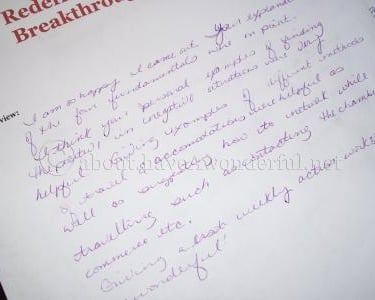 Redefi
Breakthroug
view:
I am so happy I came out. Your explanation
of the four fundamentals were on point.
I think your personal examples of finding
the in negative situations were very
helpful. Giving examples of different methods
of travel & accomodations were helpful as
well as suggesting how to network while
travelling such as contacting the chamber
commerce etc.
Giving weekly action works
wonderful!
about.have-wonderful.net